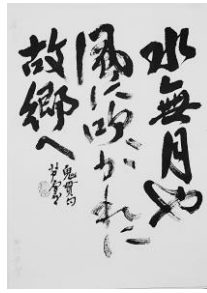 水無月や
風に吹かれに
故郷へ
鬼貫句